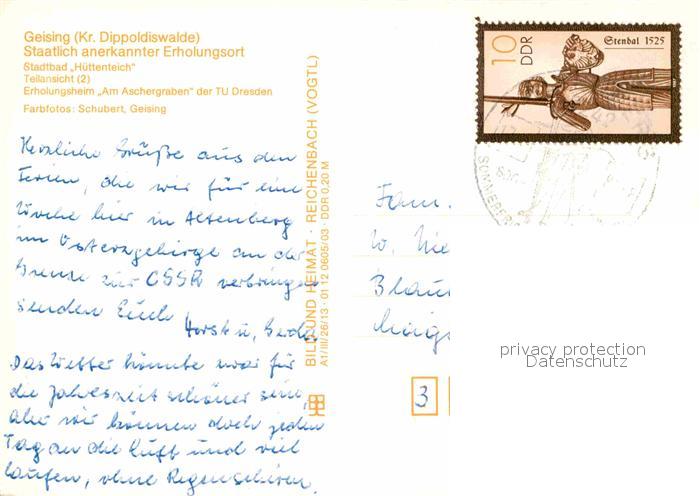 Geising (Kr. Dippoldiswalde)
Staatlich anerkannter Erholungsort
Stadtbad „Hüttenteich"
Teilansicht (2)
Erholungsheim „Am Aschergraben" der TU Dresden
Farbfotos: Schubert, Geising
Herzliche Grüße aus den
Ferien, die wir für eine
Woche hier in Altenberg
im Osterzgebirge an der
Grenze zur CSSR verbringen
senden Euch
Horst u. Gerda
Das Wetter könnte zwar für
die Jahreszeit schöner sein,
aber wir können doch jeden
Tag an die Luft und viel
laufen, ohne Regenschirm.
BILD UND HEIMAT · REICHENBACH (VOGTL)
A1/III/26/13 · 01 12 0605/03 · DDR 0,20 M
10
DDR
Stendal 1525
SONNEBERG
Fam.
Blau
3
privacy protection
Datenschutz